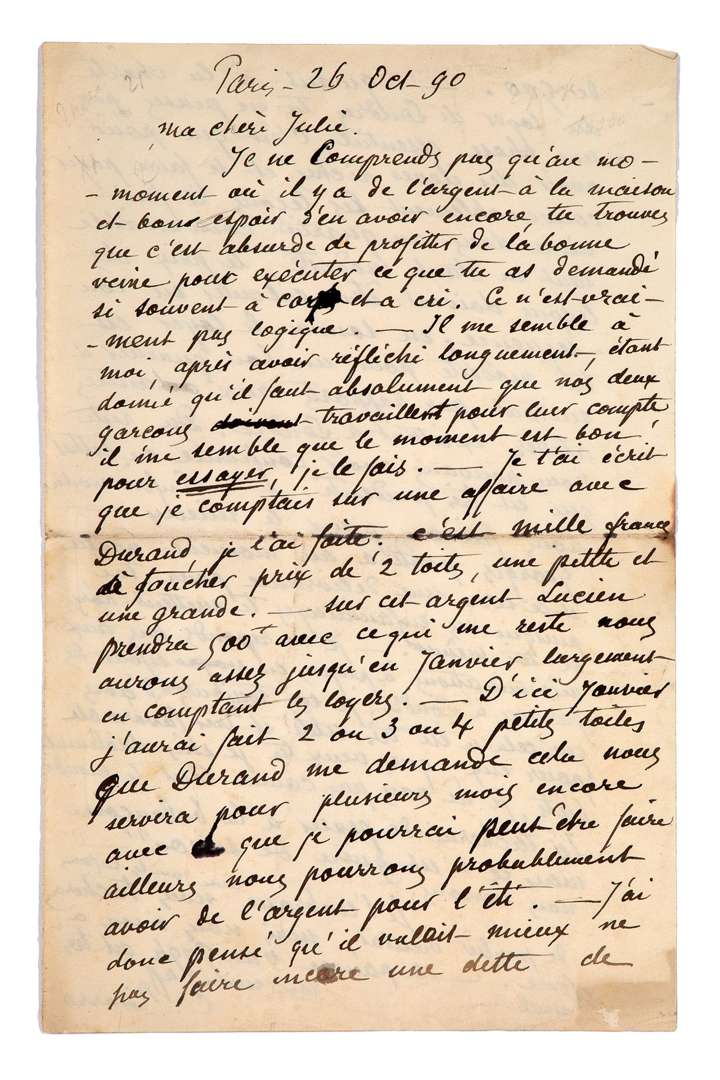 Paris - 26 Oct - 90
ma chère Julie.
Je ne Comprends pas qu'au mo-
- moment où il y a de l'argent à la maison
et bons espoir d'en avoir encore, tu trouves
que c'est absurde de profitter de la bonne
veine pour exécuter ce que tu as demandé
si souvent à cor et a cri. Ce n'est vrai-
- ment pas logique. — Il me semble à
moi, après avoir réfléchi longuement, étant
donné qu'il faut absolument que nos deux
garçons doivent travaillent pour leur compte
il me semble que le moment est bon
pour essayer, je le fais. — Je t'ai écrit
que je comptais sur une affaire avec
Durand, je l'ai faite; c'est mille francs
à toucher prix de 2 toiles, une petite et
une grande. — sur cet argent Lucien
prendra 500f avec ce qui me reste nous
aurons assez jusqu'en Janvier largement
en comptant les loyers. — D'ici Janvier
j'aurai fait 2 ou 3 ou 4 petites toiles
que Durand me demande cela nous
servira pour plusieurs mois encore
avec que je pourrai peut-être faire
ailleurs nous pourrons probablement
avoir de l'argent pour l'été. — J'ai
donc pensé qu'il valait mieux ne
pas faire encore une dette de